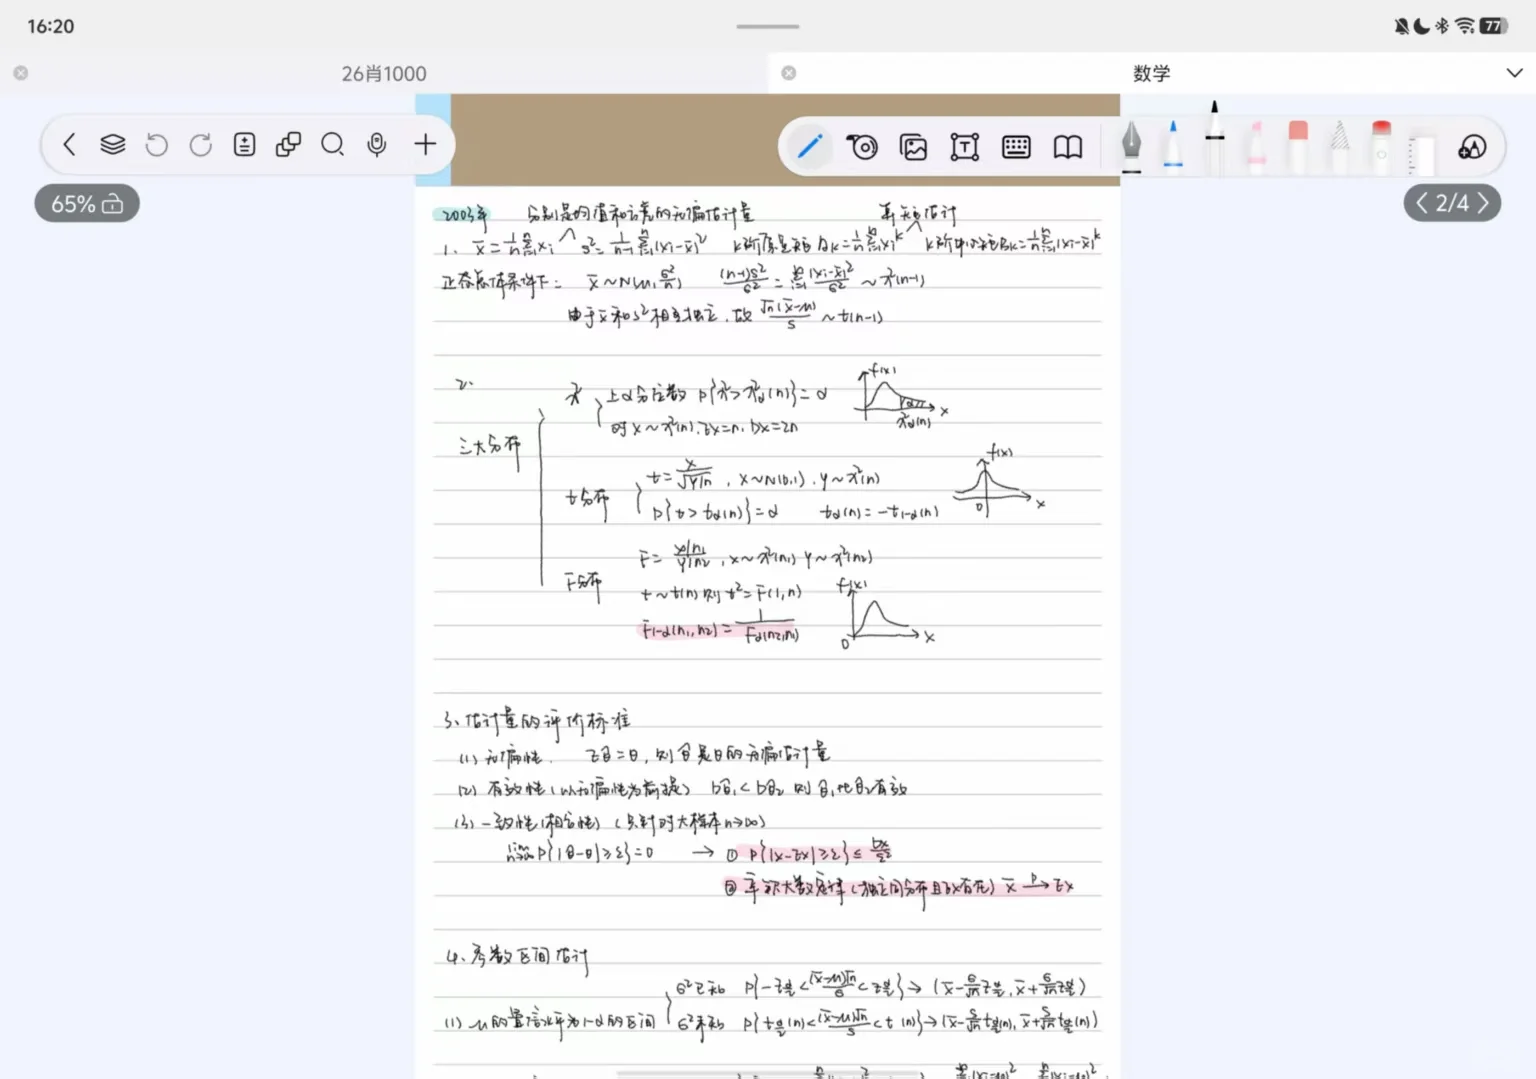 16:20
77
26肖1000
数学
65%
2/4
2003年 分别是均值和方差的无偏估计量 矩估计
1. x̄=1/n Σxi s²=1/(n-1) Σ(xi-x̄)² k阶原点矩Ak=1/n Σxi^k k阶中心矩Bk=1/n Σ(xi-x̄)^k
正态总体条件下: x̄~N(μ,σ²/n) (n-1)s²/σ² = Σ(xi-x̄)²/σ² ~χ²(n-1)
由于x̄和s²相互独立,故 √n(x̄-μ)/s ~t(n-1)
2.
三大分布
χ² 上α分位数 P{χ²>χ²α(n)}=α
对x~χ²(n),Ex=n,Dx=2n
f(x)
x
χ²α(n)
t分布 t=x/√(y/n) , x~N(0,1), y~χ²(n)
P{t>tα(n)}=α tα(n)=-t1-α(n)
f(x)
0 x
F分布 F=(x/n1)/(y/n2) , x~χ²(n1) y~χ²(n2)
t~t(n)则t²=F(1,n)
F1-α(n1,n2)=1/Fα(n2,n1)
f(x)
0 x
3、估计量的评价标准
(1) 无偏性. Eθ̂=θ, 则θ̂是θ的无偏估计量
(2) 有效性(以无偏性为前提) Dθ̂1<Dθ̂2 则θ̂1比θ̂2有效
(3) 一致性(相合性) (只针对大样本n→∞)
lim n→∞ P{|θ̂-θ|≥ε}=0 → ① P{|x-Ex|≥ε}≤Dx/ε²
② 辛钦大数定律(独立同分布且Ex存在) x̄ P→ Ex
4、参数区间估计
(1) μ的置信水平为1-α的区间
σ²已知 P{-zα/2<(x̄-μ)√n/σ<zα/2}→(x̄-σ/√n zα/2, x̄+σ/√n zα/2)
σ²未知 P{tα/2(n)<(x̄-μ)√n/s<t (n)}→(x̄-s/√n tα/2(n), x̄+s/√n tα/2(n))